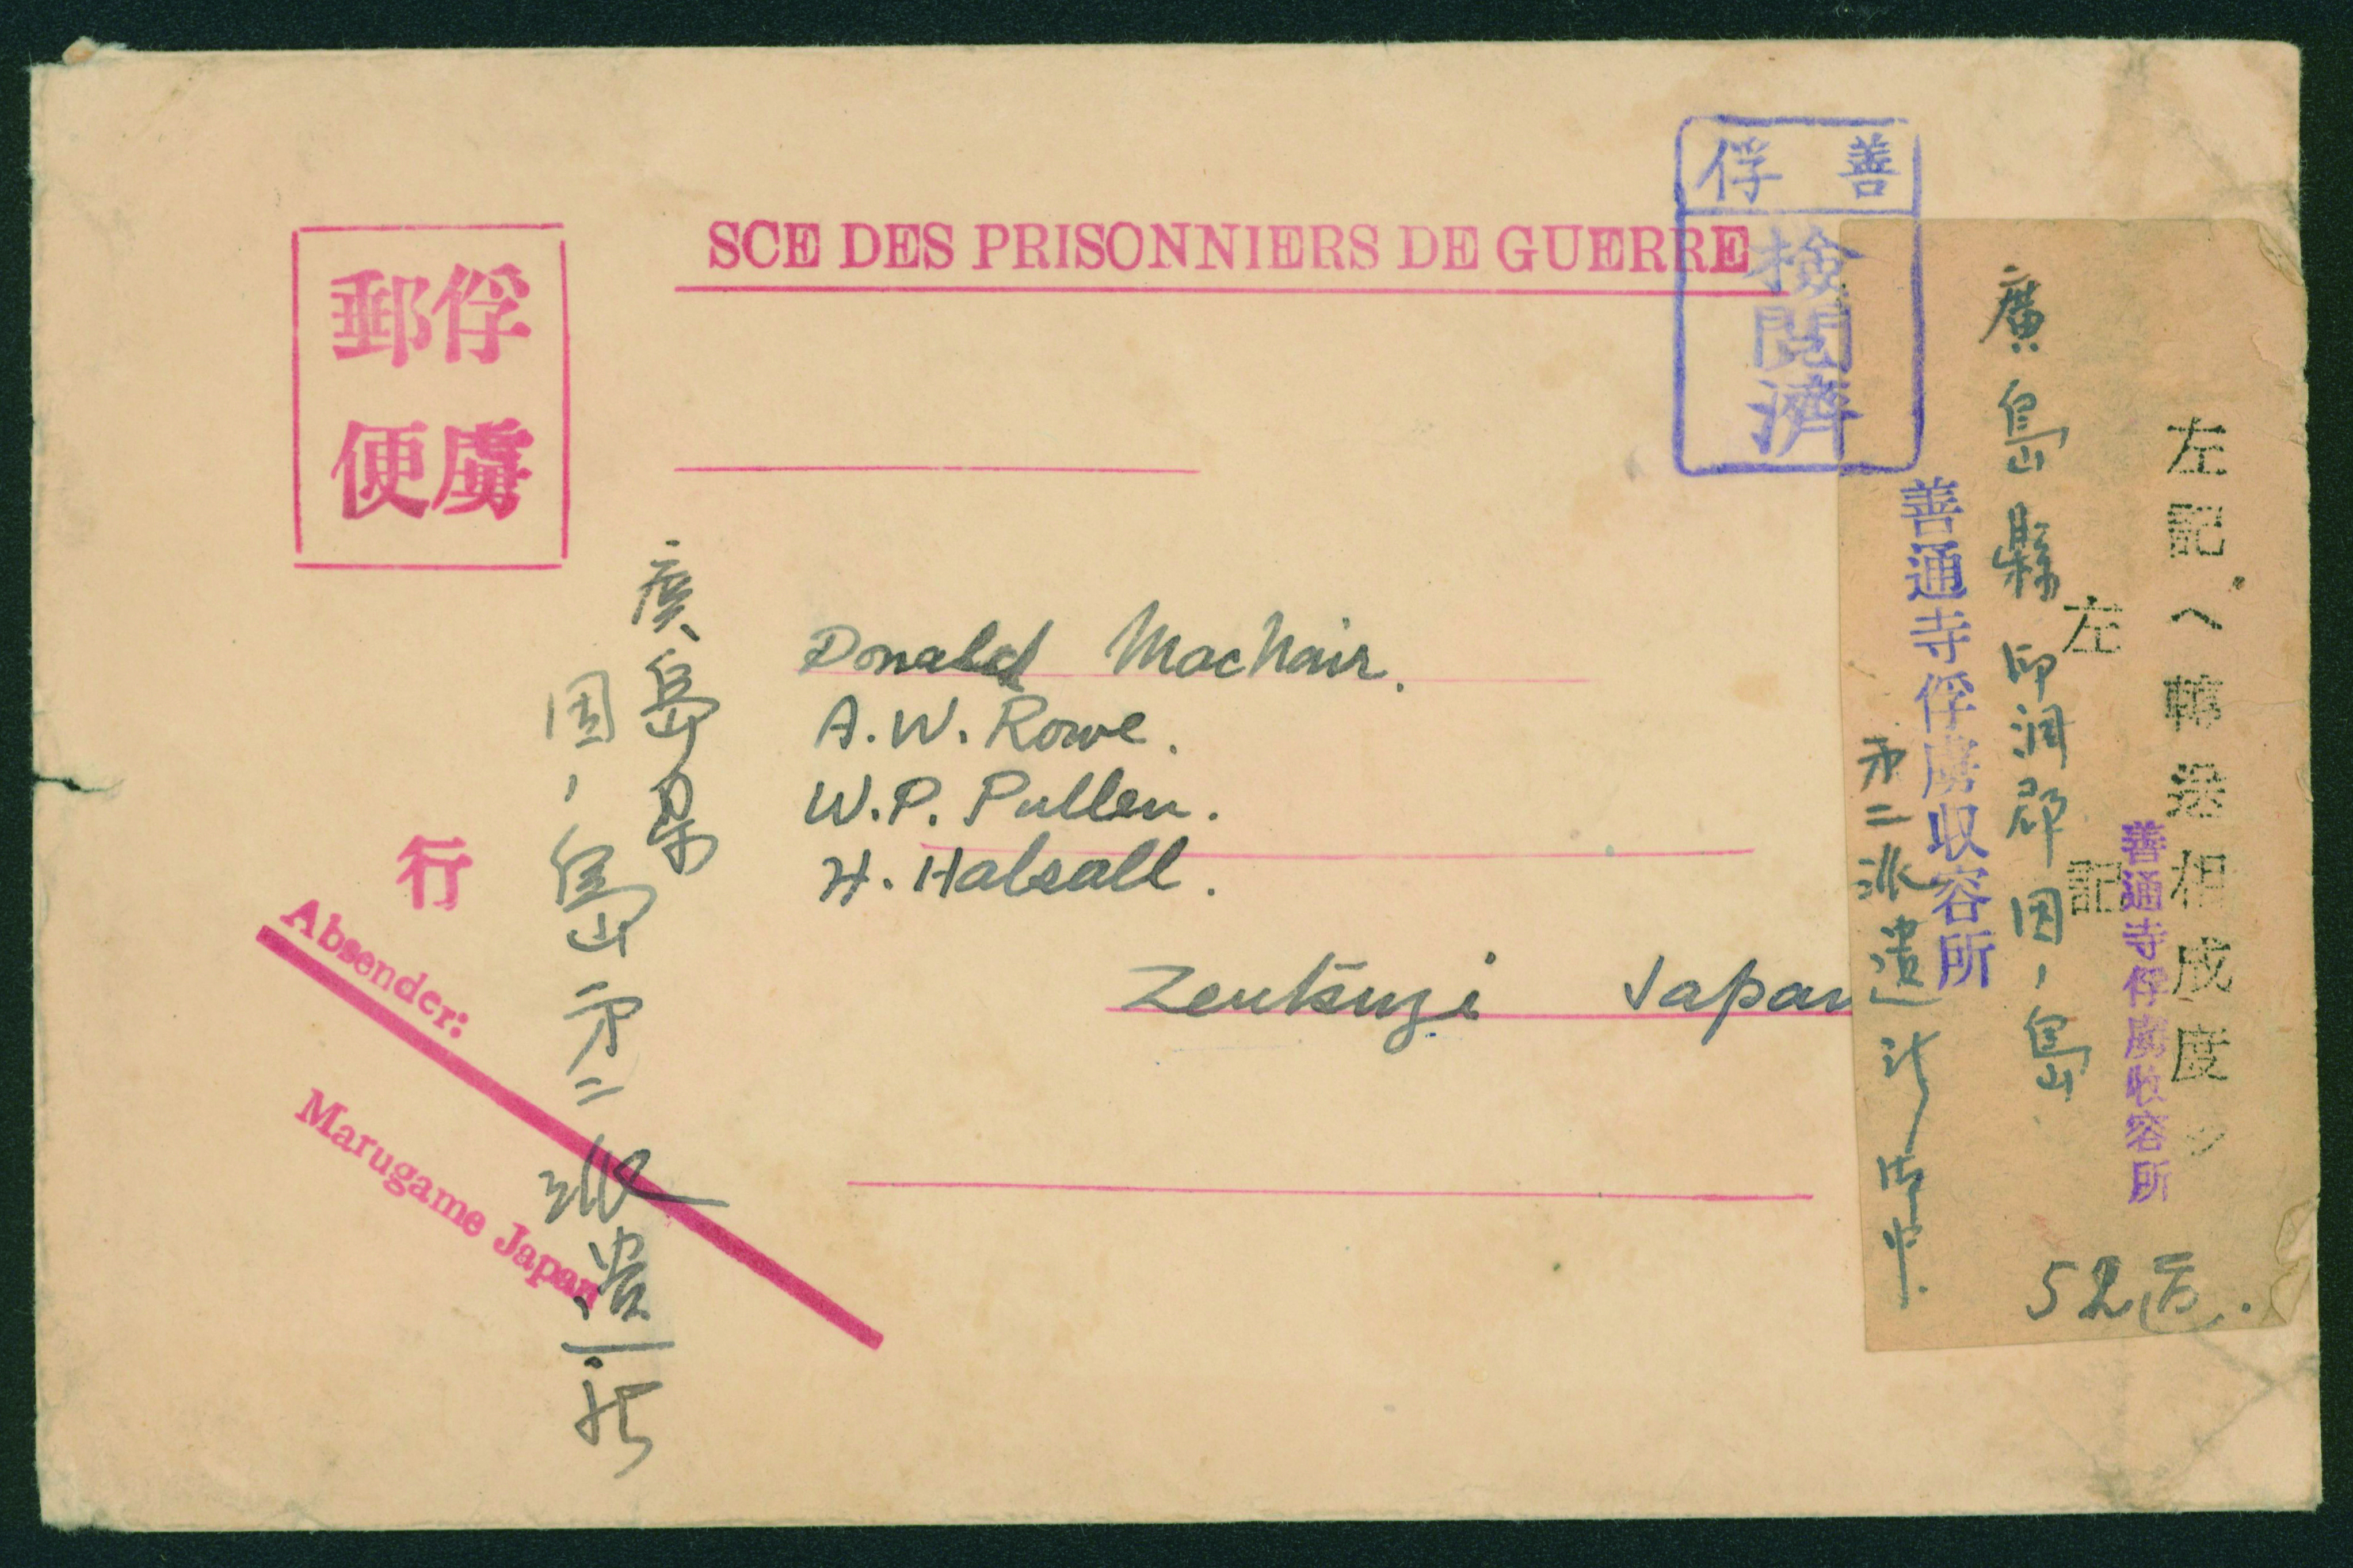 SCE DES PRISONNIERS DE GUERRE
俘虜
郵便
善俘
検閲濟
Donald MacNair.
A.W. Rowe.
W.P. Pullen.
H. Halsall.
Zentsuzi Japan
行
Absender:
Marugame Japan
広島県
因ノ島第二派遣所
左記ヘ轉送相成度
善通寺俘虜收容所
左記
廣島縣御調郡因ノ島
善通寺俘虜収容所
第二派遣所
52